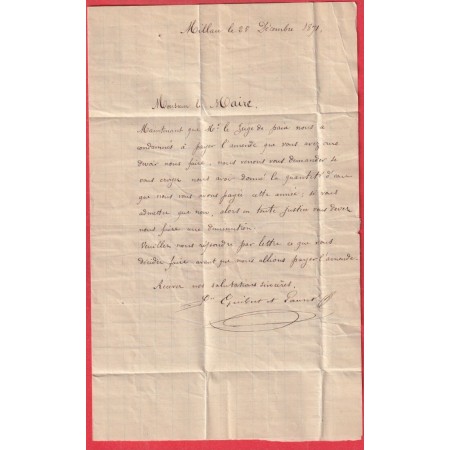 Millau le 20 Décembre 1871.
Monsieur le Maire,
Maintenant que Mr le Juge de paix nous a
condamnés à payer l'amende que vous avez cru
devoir nous faire, nous venons vous demander si
vous croyez nous avoir donné la quantité d'eau
que nous vous avons payée cette année; si vous
admettez que non, alors en toute justice vous devez
nous faire une diminution.
Veuillez nous répondre par lettre ce que vous
décidez faire avant que nous allions payer l'amende.
Recevez nos salutations sincères.
Guibert et